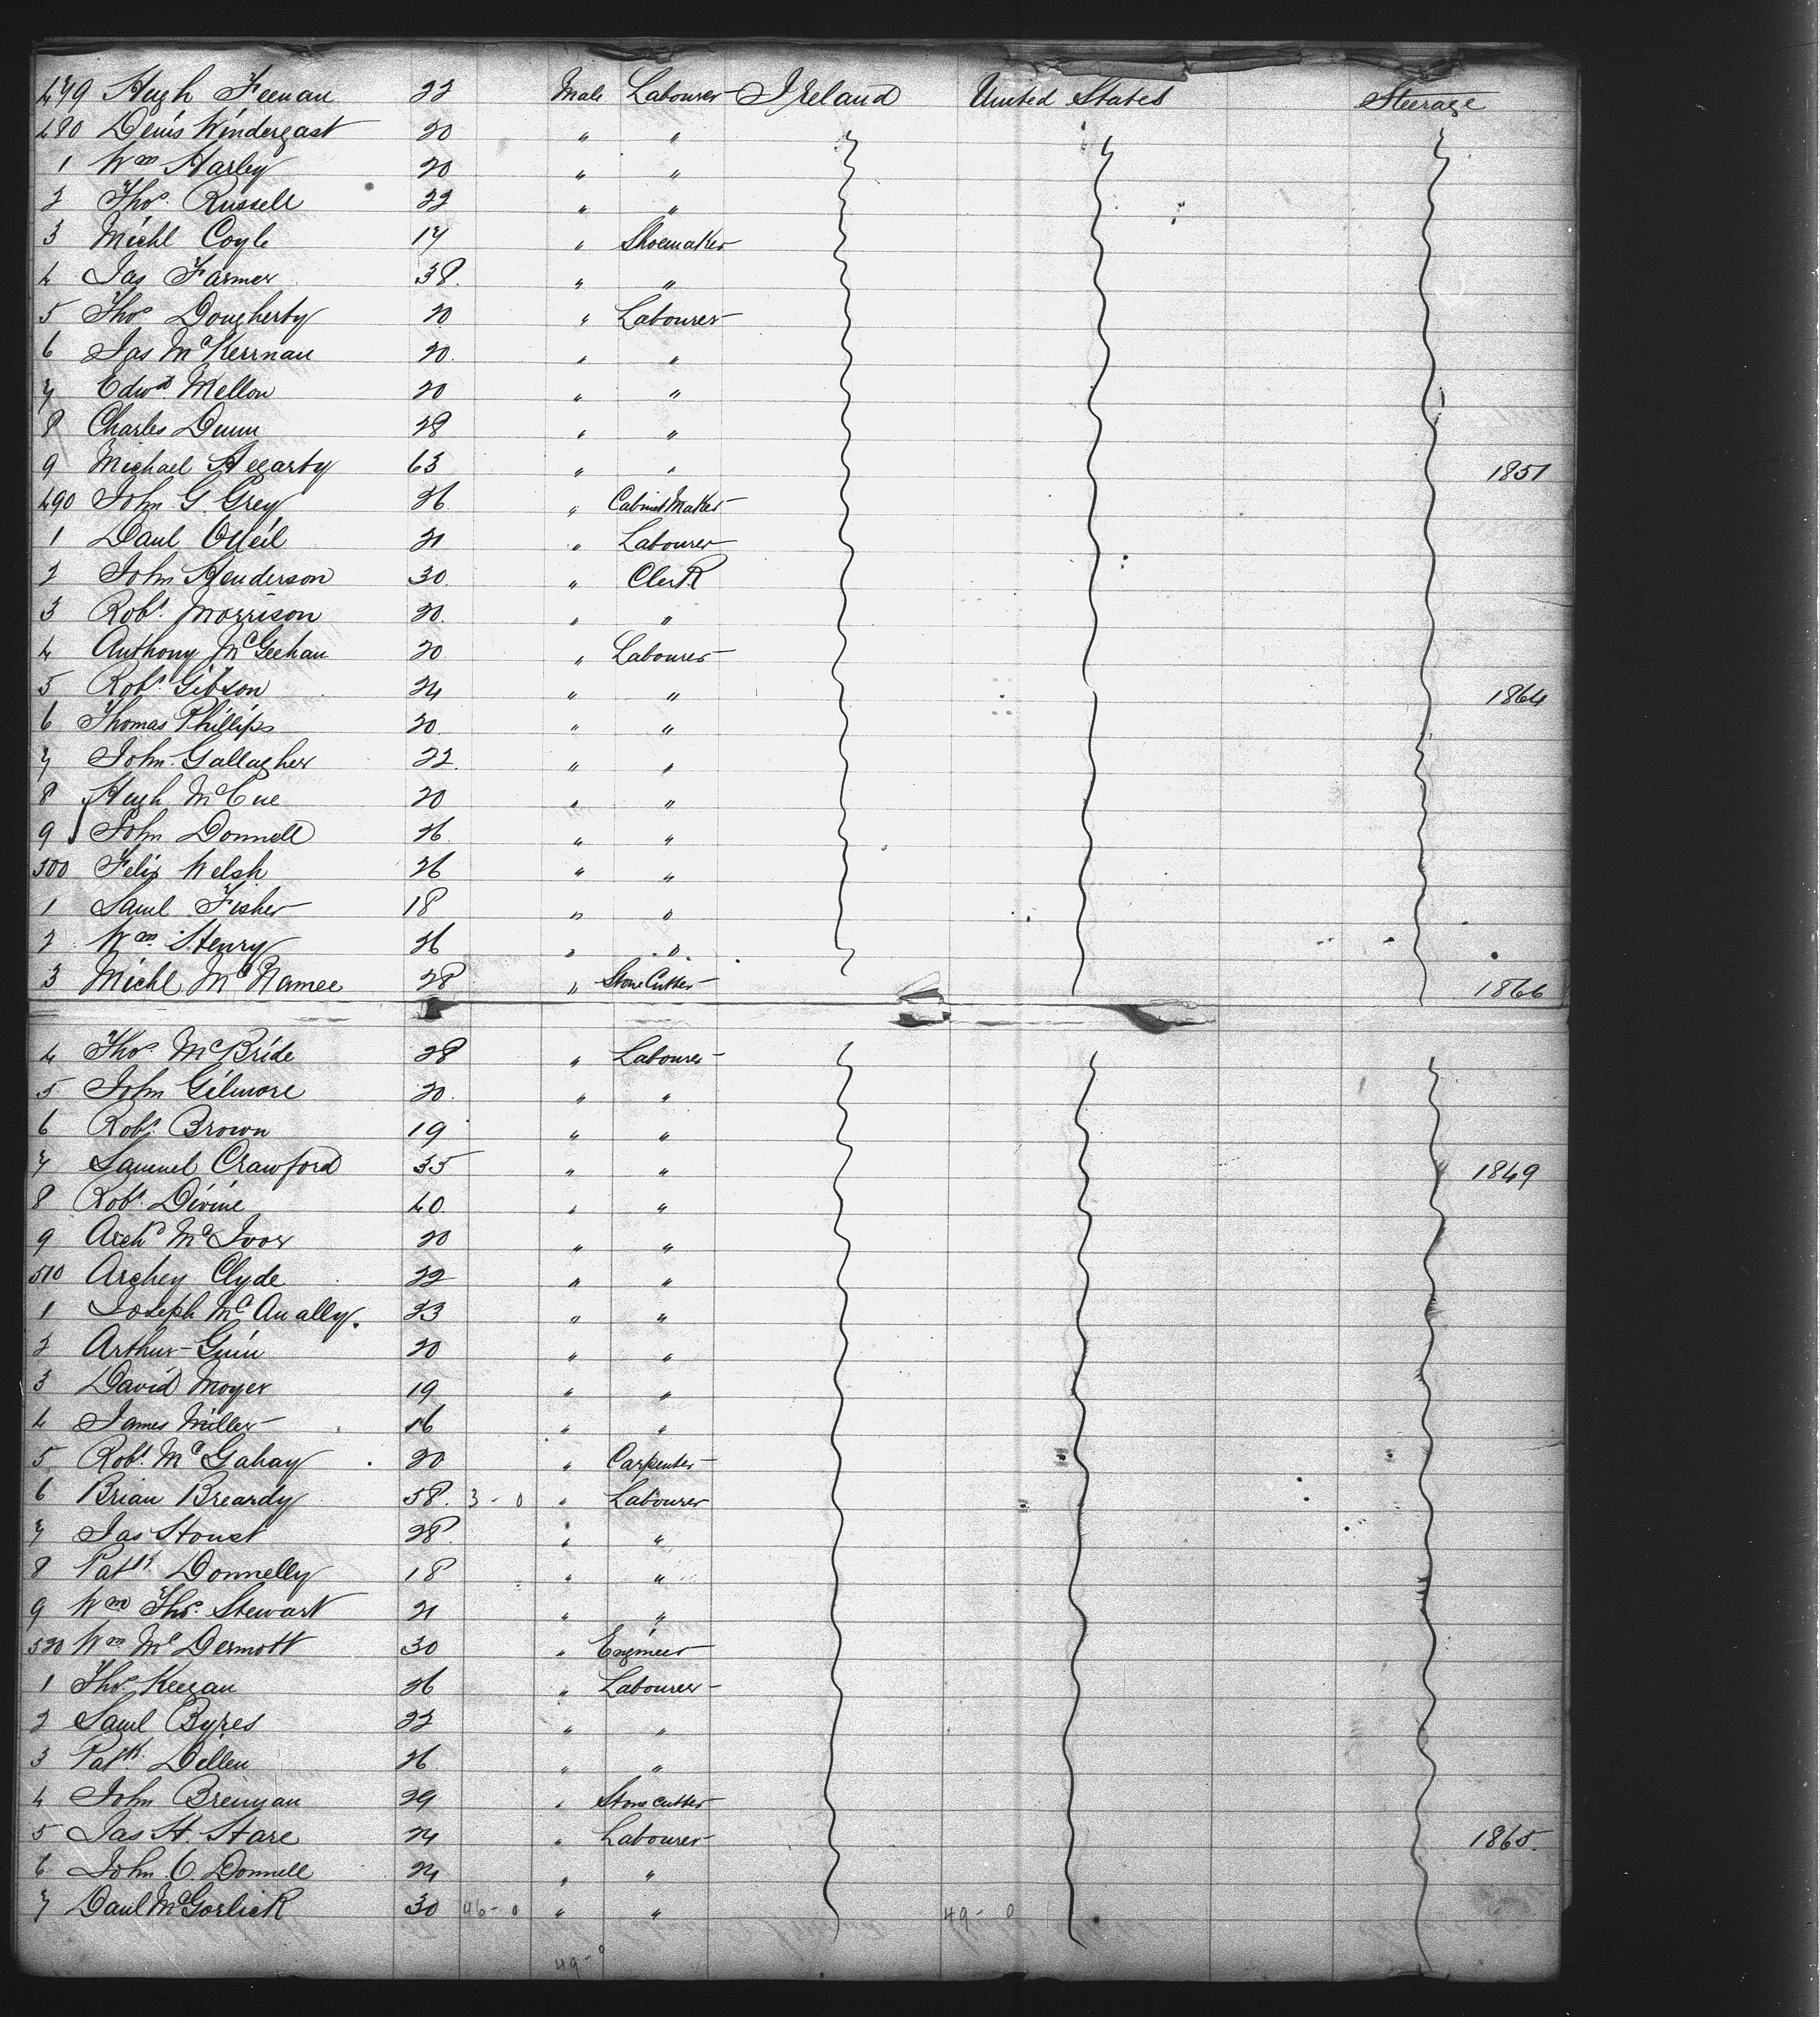 479 Hugh Feenan 22 Male Labourer Ireland United States Steerage
480 Denis Windergast 20 " "
1 Wm Harley 20 " "
2 Thos. Russell 22 " "
3 Michl Coyle 17 " Shoemaker
4 Jas Farmer 38. " "
5 Thos Dougherty 20 " Labourer
6 Jas McKerrnan 20. " "
7 Edwd Mellon 20 " "
8 Charles Dunn 28 " "
9 Michael Hegarty 63 " " 1851
490 John G. Grey 26 " Cabinet Maker
1 Danl ONeil 21 " Labourer
2 John Henderson 30. " Clerk
3 Robt. Morrison 20. " "
4 Anthony McGeehan 20 " Labourer
5 Robt. Gibson 24 " " 1864
6 Thomas Phillips 20. " "
7 John Gallagher 22. " "
8 Hugh McCue 20 " "
9 John Donnell 26. " "
500 Felix Welsh 26 " "
1 Saml Fisher 18 " "
2 Wm Henry 26 " "
3 Michl McNamee 28 " Stone Cutter 1866
4 Thos. McBride 28 " Labourer
5 John Gilmore 20. " "
6 Robt. Brown 19 " "
7 Samuel Crawford 35 " " 1849
8 Robt. Divine 40 " "
9 Archd McIvor 20 " "
510 Archey Clyde 22 " "
1 Joseph McAnally. 23 " "
2 Arthur Guin 20 " "
3 David Moyer 19 " "
4 James Miller 16 " "
5 Robt. McGahay 20 " Carpenter
6 Brian Breardy 58. 3 - 0 " Labourer
7 Jas Houst 28. " "
8 Patk Donnelly 18 " "
9 Wm Thos. Stewart 21 " "
520 Wm McDermott 30 " Engineer
1 Thos. Keegan 26 " Labourer
2 Saml Byres 22 " "
3 Patk. Dillen 26 " "
4 John Brennan 29 " Stone cutter
5 Jas H. Hare 24 " Labourer 1865.
6 John O. Donnell 24 " "
7 Danl McGorlick 30 46 - 0 " " 49 - 0
49 - 0